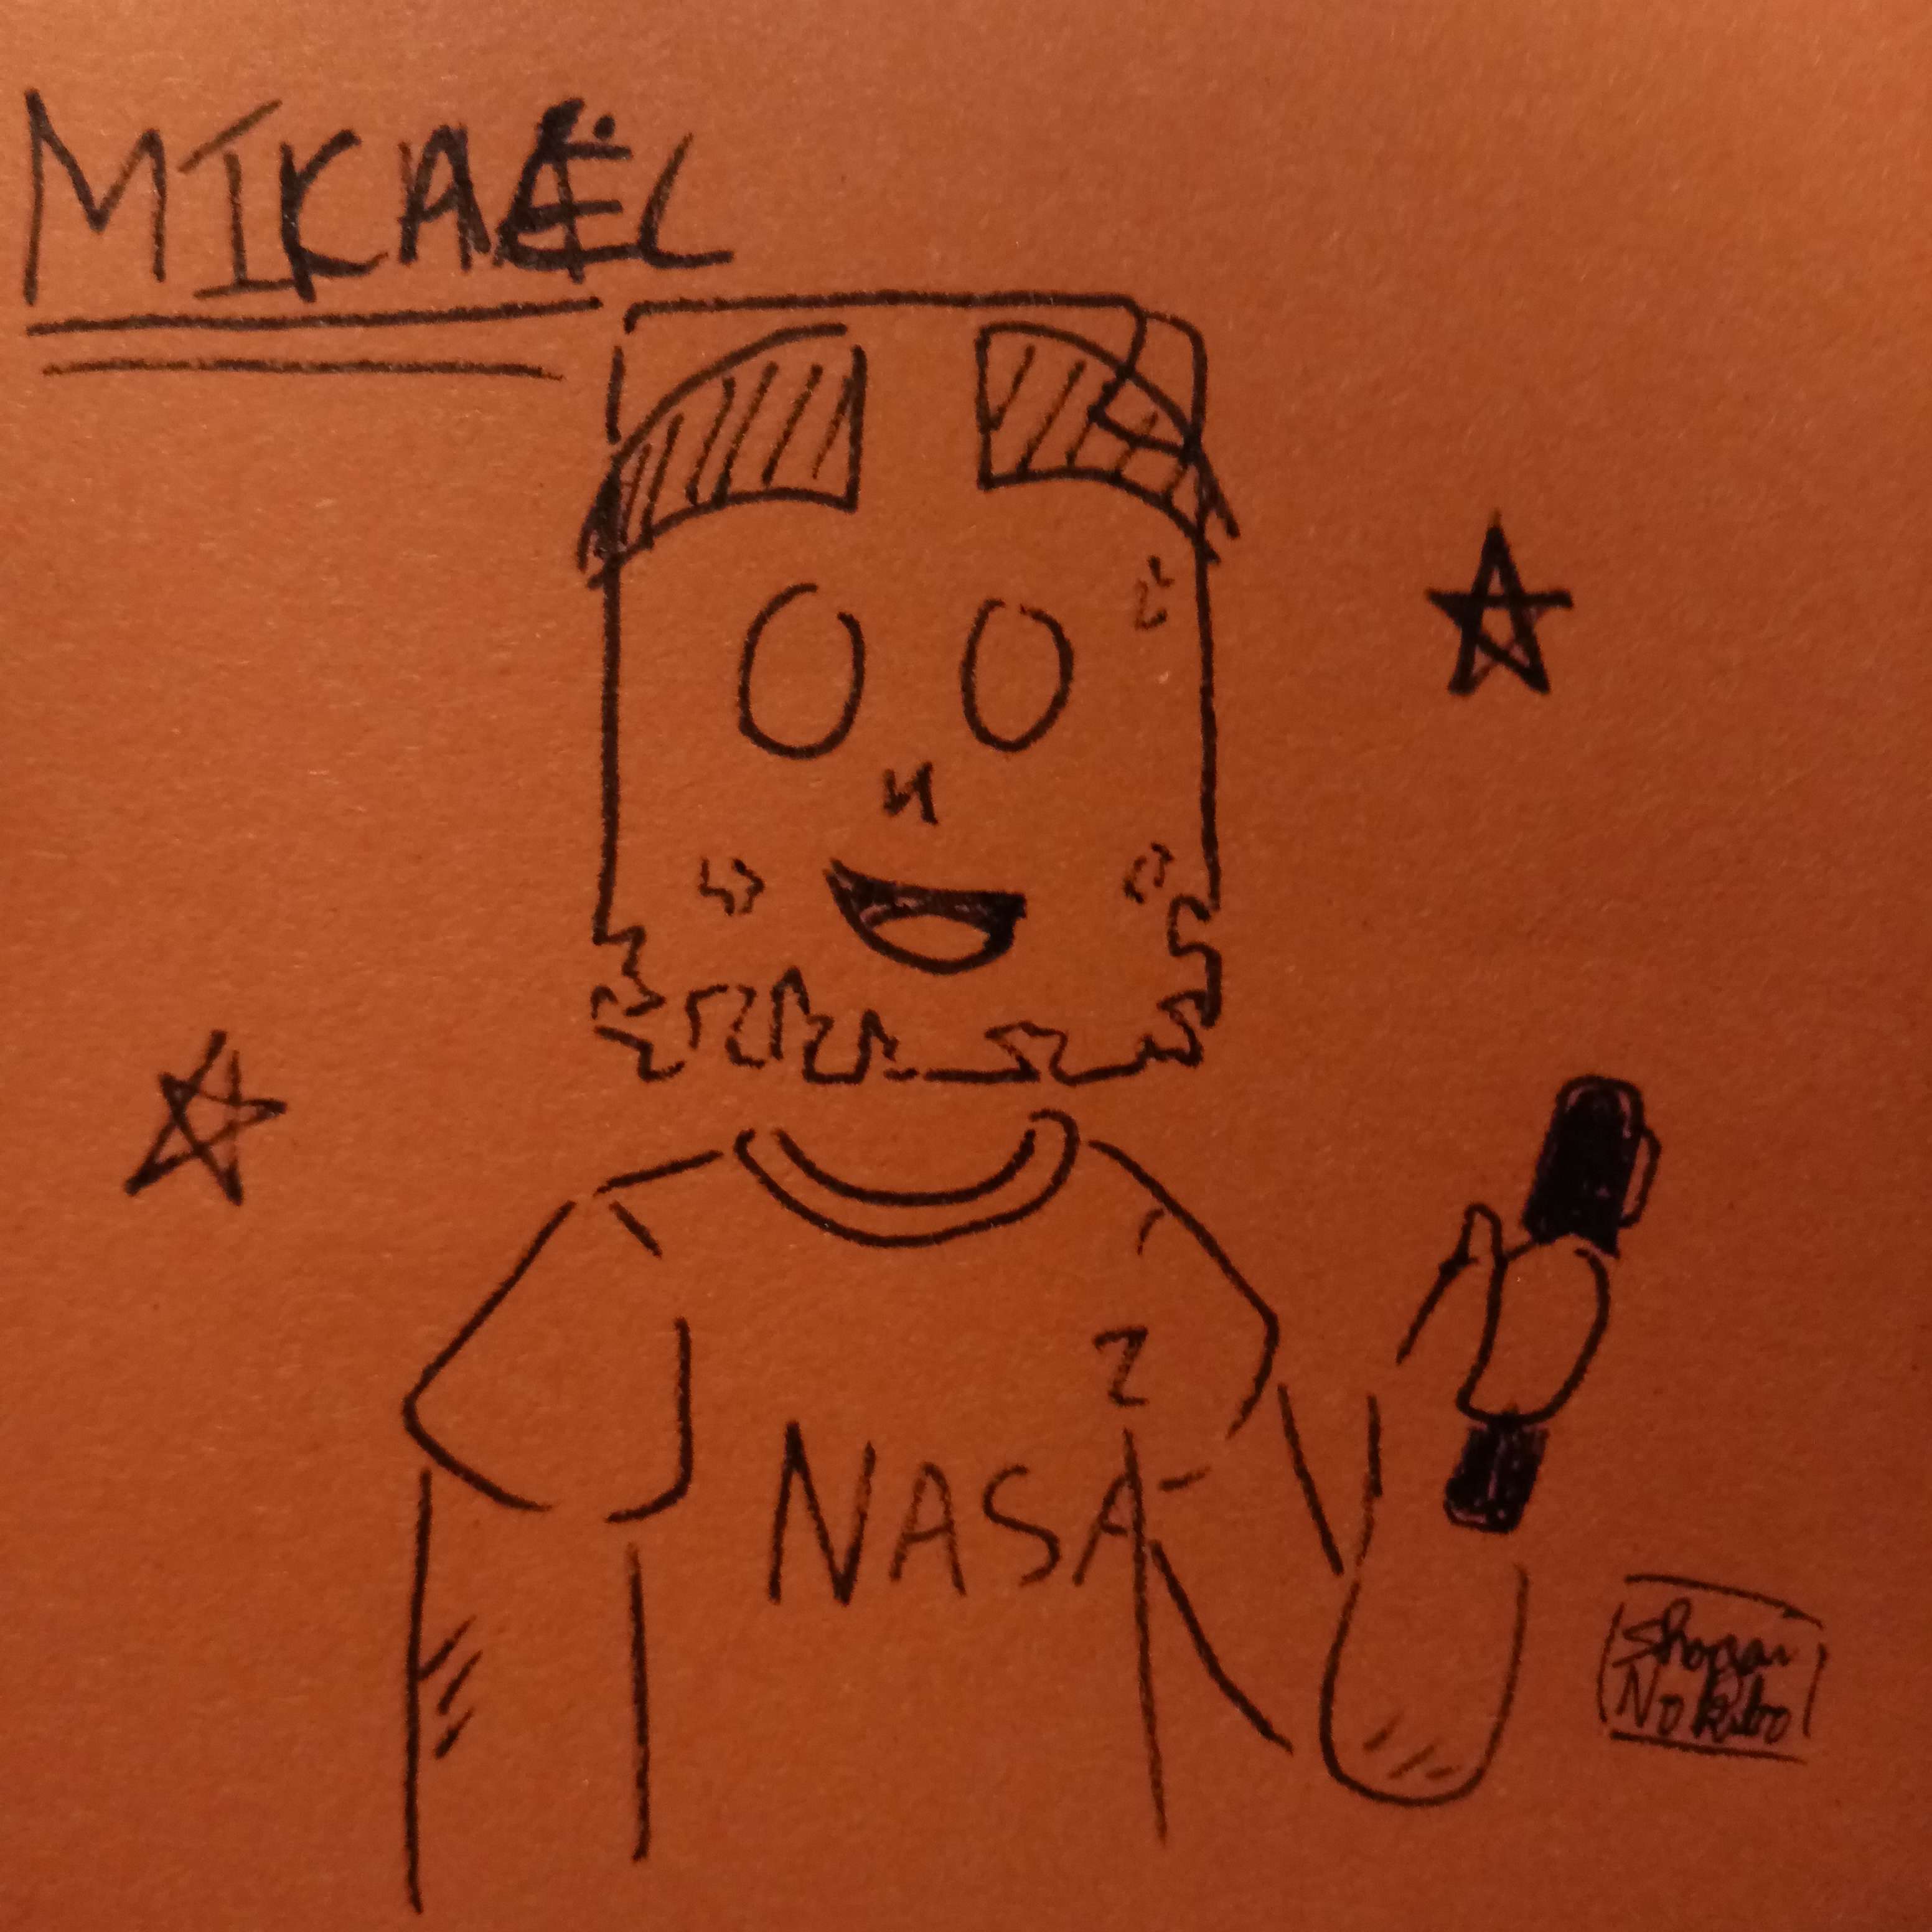 MIKAËL
NASA
Shogai
No Kibo